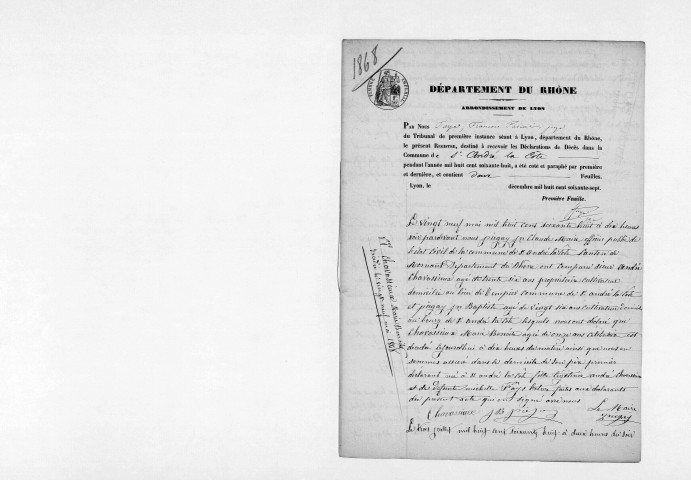 1868
DÉPARTEMENT DU RHÔNE
ARRONDISSEMENT DE LYON
PAR NOUS juge
du Tribunal de première instance séant à Lyon, département du Rhône,
le présent REGISTRE, destiné à recevoir les Déclarations de Décès dans la
Commune de St André la Côte
pendant l'année mil huit cent soixante-huit, a été coté et paraphé par première
et dernière, et contient douze Feuilles.
Lyon, le décembre mil huit cent soixante-sept.
Première Feuille.
Le vingt neuf mai mil huit cent soixante huit à dix heures
soir pardevant nous pierre Claude Marie officier public de
l'état civil de la commune de St andré la Côte Canton de
Mornant Département du Rhône ont comparu sieur andré
Chavassieux agé de trente six ans propriétaire cultivateur
domicilié au lieu de commune de St andré la Côte
et Baptiste agé de vingt six ans cultivateur
au bourg de St andré la Côte lesquels nous ont déclaré que
Marie Benoite agée de onze ans est
décédée aujourd'hui à dix heures du matin ainsi que nous en
sommes assuré dans le domicile de son père premier
déclarant née à St andré la Côte fille légitime andré
et de défunte michelle Fays lecture faite aux déclarants
du présent acte qui ont signé avec nous
Le Maire
Le trois juillet mil huit cent soixante huit à deux heures du soir
Marie Benoite
décédée le vingt neuf mai 1868